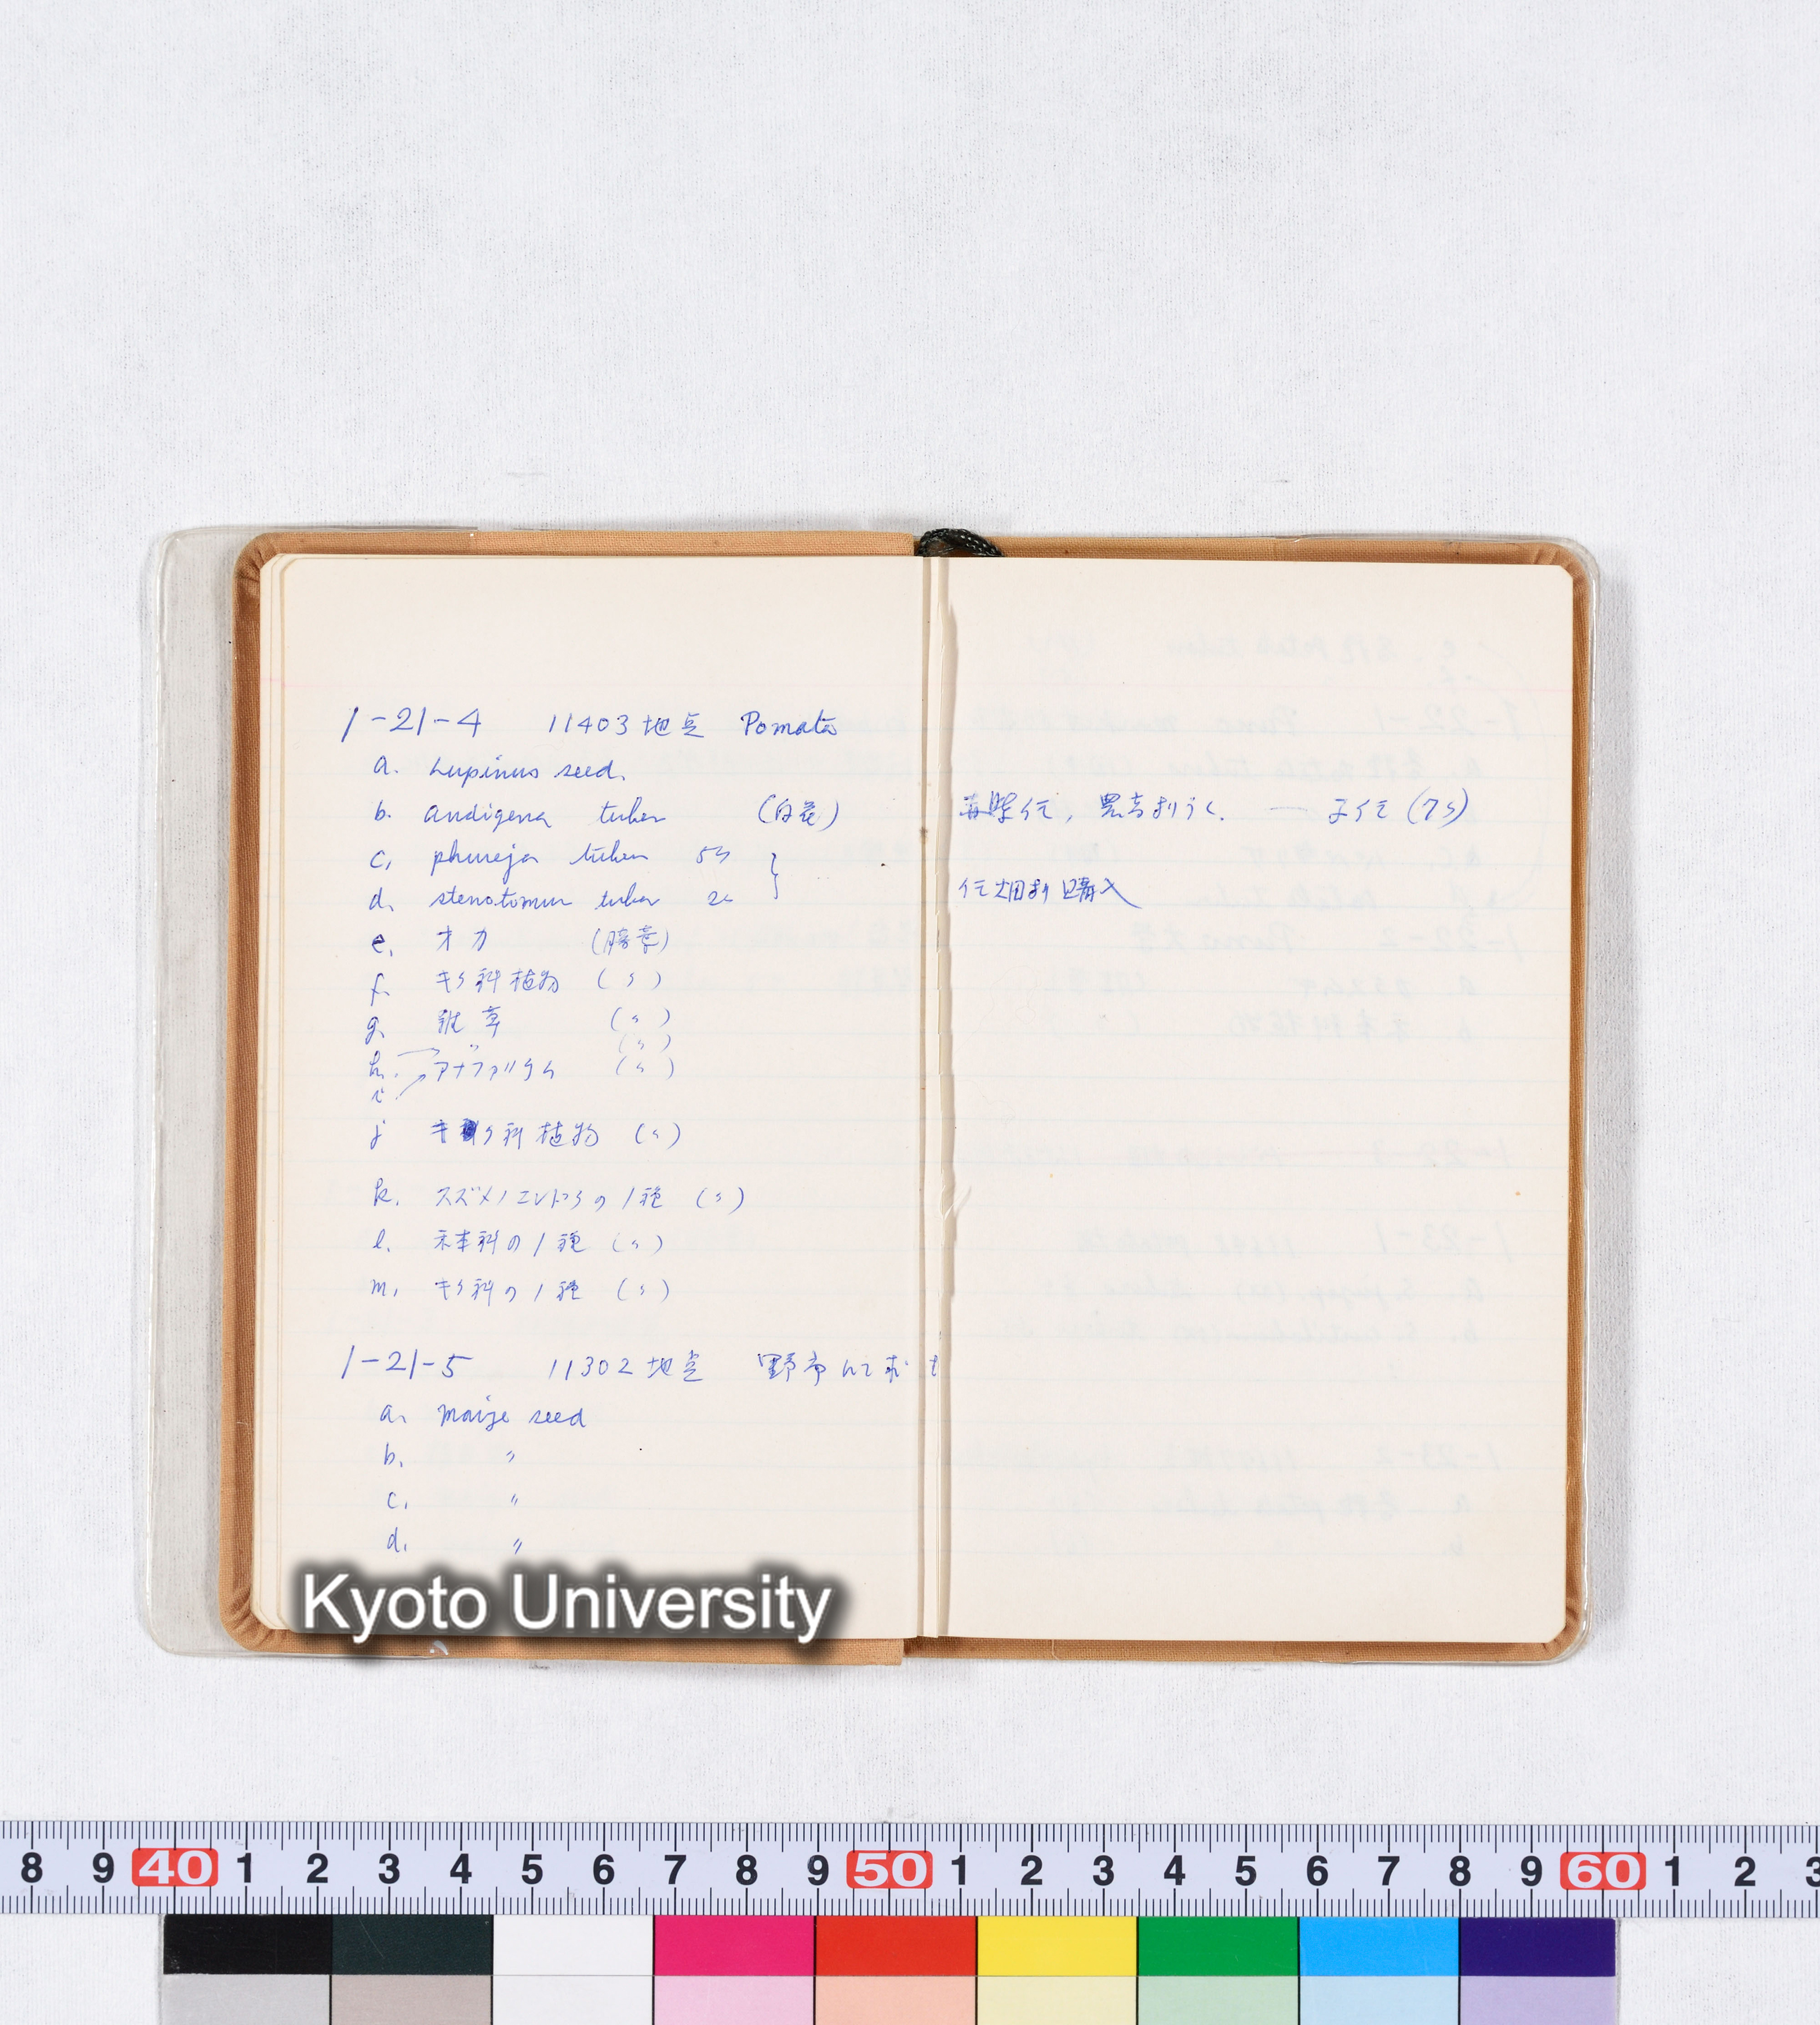 1-21-4 11403地点 Pomata
a. Lupinus seed.
b. andigena tuber (白花)
c. phureja tuber 5コ
d. stenotomum tuber 2コ
e. オカ (腊葉)
f. キク科植物 (〃)
g. 雑草 (〃)
h. 〃 (〃)
i. アナファリクム (〃)
j キク科植物 (〃)
k. スズメノエンドウの1種 (〃)
l. 禾本科の1種 (〃)
m. キク科の1種 (〃)
1-21-5 11302地点 野帝にて
a. maize seed
b. 〃
c. 〃
d. 〃
畑より購入
Kyoto University
8 9 40 1 2 3 4 5 6 7 8 9 50 1 2 3 4 5 6 7 8 9 60 1 2 3